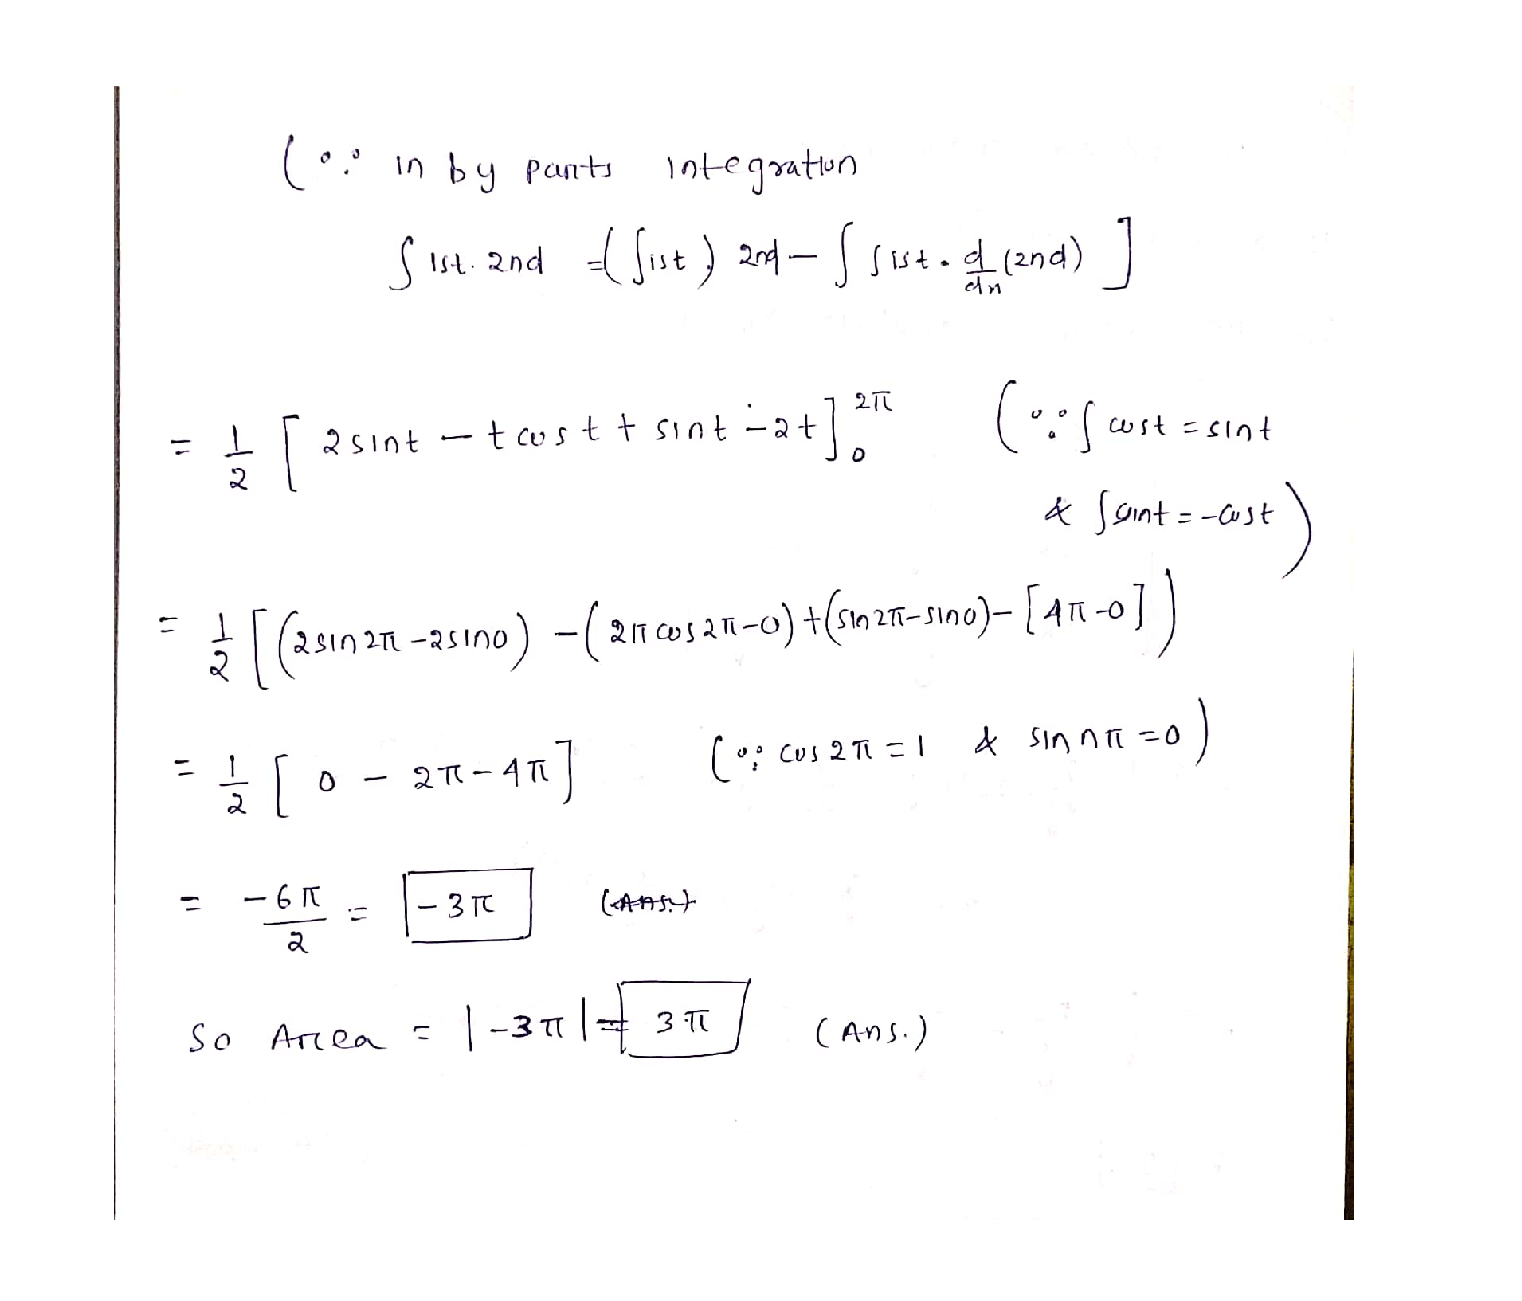 (∵ in by parts integration
∫ 1st. 2nd = (∫1st) 2nd - ∫ ∫1st . d/dn (2nd) ]
= 1/2 [ 2sint - tcost + sint - 2t]₀^2π (∵ ∫cost = sint
& ∫sint = -cost)
= 1/2 [(2sin2π - 2sin0) - (2πcos2π-0) + (sin2π-sin0) - [4π-0])
= 1/2 [ 0 - 2π - 4π] (∵ cos2π = 1 & sin nπ = 0)
= -6π/2 = -3π (Ans.)
So Area = |-3π| = 3π (Ans.)